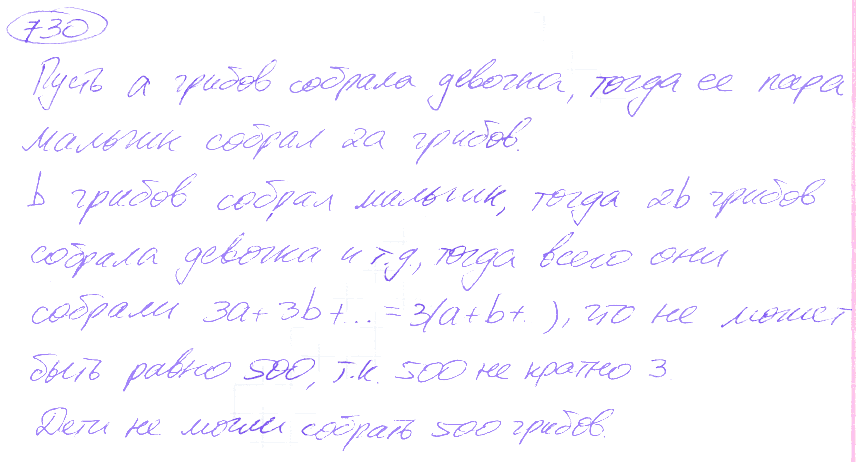 730
Пусть а грибов собрала девочка, тогда ее пара
мальчик собрал 2а грибов.
b грибов собрал мальчик, тогда 2b грибов
собрала девочка и т.д, тогда всего они
собрали 3a+3b+... = 3(a+b+..), что не может
быть равно 500, т.к. 500 не кратно 3
Дети не могли собрать 500 грибов.